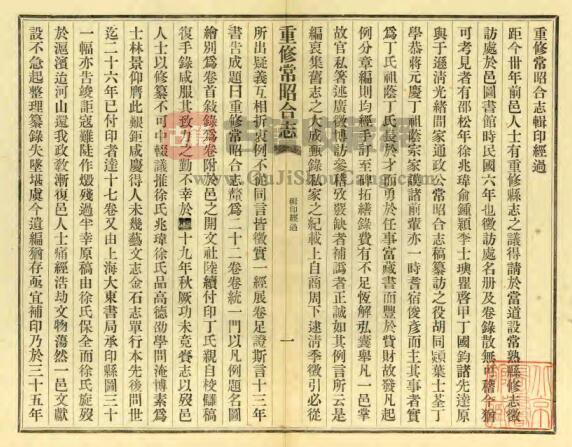 重修常昭合志輯印經過
距今卅年前邑人士有重修縣志之議得請於當道設常熟縣修志徵
訪處於邑圖書館時民國六年也徵訪處名册及卷錄散無可稽今猶
可考見者有邵松年徐兆瑋俞鍾穎李士瓛瞿啓甲丁國鈞諸先達原
與于遜清光緒間家通政公常昭合志稿纂訪之役胡同潁葉士荃丁
學恭蔣元慶丁祖蔭宗家漢諸前輩亦一時耆宿俊彥而主其事者實
爲丁氏祖蔭丁氏長於才而勇於任事富藏書而豐於貲財故發凡起
例分章編則均經手訂至碑拓繕錄費有不足恆解私囊舉凡一邑掌
故官私箸述廣徵博訪參稽攷覈缺者補譌者正誠如其例言所云是
編裒集舊志之大成甄錄私家之紀載上自商周下逮清季徵引必從
重修常昭合志
輯印經過
一
所出疑義互相折衷例不能同言皆徵實一經展卷足證斯言十三年
書告成題曰重修常昭合志釐爲二十二卷卷統一門以凡例題名圖
繪別爲卷首敘錄爲卷附付邑之開文社陸續付印丁氏親自校讎稿
復手錄咸服其致力之勤不幸於十九年秋厥功未竟賫志以歿邑
人士以修纂不可中輟議推徐氏兆瑋徐氏品高德劭學問淹博素爲
士林景仰膺此艱鉅咸慶得人未幾藝文志金石志單行本先後問世
迄二十六年已付印者達十七卷又由上海大東書局承印縣圖三十
一幅亦告竣詎寇難陡作燬殘過半幸原稿由徐氏保全而徐氏旋歿
於滬濱迨河山還我政敎漸復邑人士痛經浩劫文物蕩然一邑文獻
設不急起整理纂錄失墜堪虞今遺編猶存亟宜補印乃於三十五年
www.GuJiShouCang.com